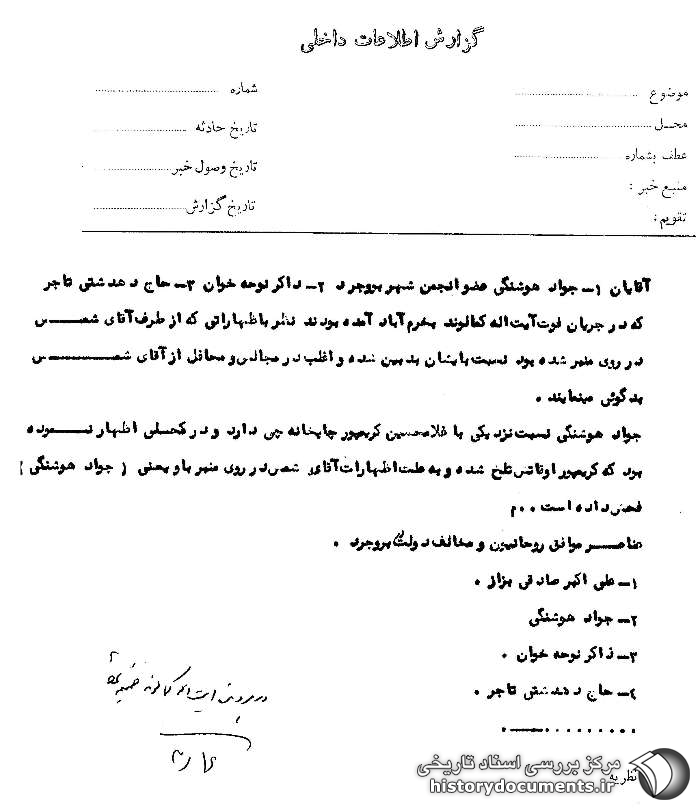 گزارش اطلاعات داخلی
موضوع
شماره
محل
تاریخ حادثه
عطف بشماره
تاریخ وصول خبر
منبع خبر :
تاریخ گزارش
تقویم :
آقایان ۱- جواد هوشنگی عضو انجمن شهر بروجرد ۲- ذاکر نوحه خوان ۳- حاج دهدشتی تاجر
که در جریان فوت آیت اله کمالوند بخرم آباد آمده بودند نظر باظهاراتی که از طرف آقای شمس
در روی منبر شده بود نسبت بایشان بدبین شده و اغلب در مجالس و محافل از آقای شمس
بدگوئی مینمایند .
جواد هوشنگی نسبت نزدیکی با غلامحسین کریمپور چاپخانه چی دارد و در محلی اظهار نموده
بود که کریمپور اوقاتش تلخ شده و به علت اظهارات آقای شمس در روی منبر باو یعنی ( جواد هوشنگی )
فحش داده است . . م
عناصر موافق روحانیون و مخالف دولت بروجرد .
۱- علی اکبر صادقی بزاز .
۲- جواد هوشنگی
۳- ذاکر نوحه خوان .
۴- حاج دهدشتی تاجر .
در پرونده آیت اله کمالوند
نظریه
مرکز بررسی اسناد تاریخی
historydocuments.ir